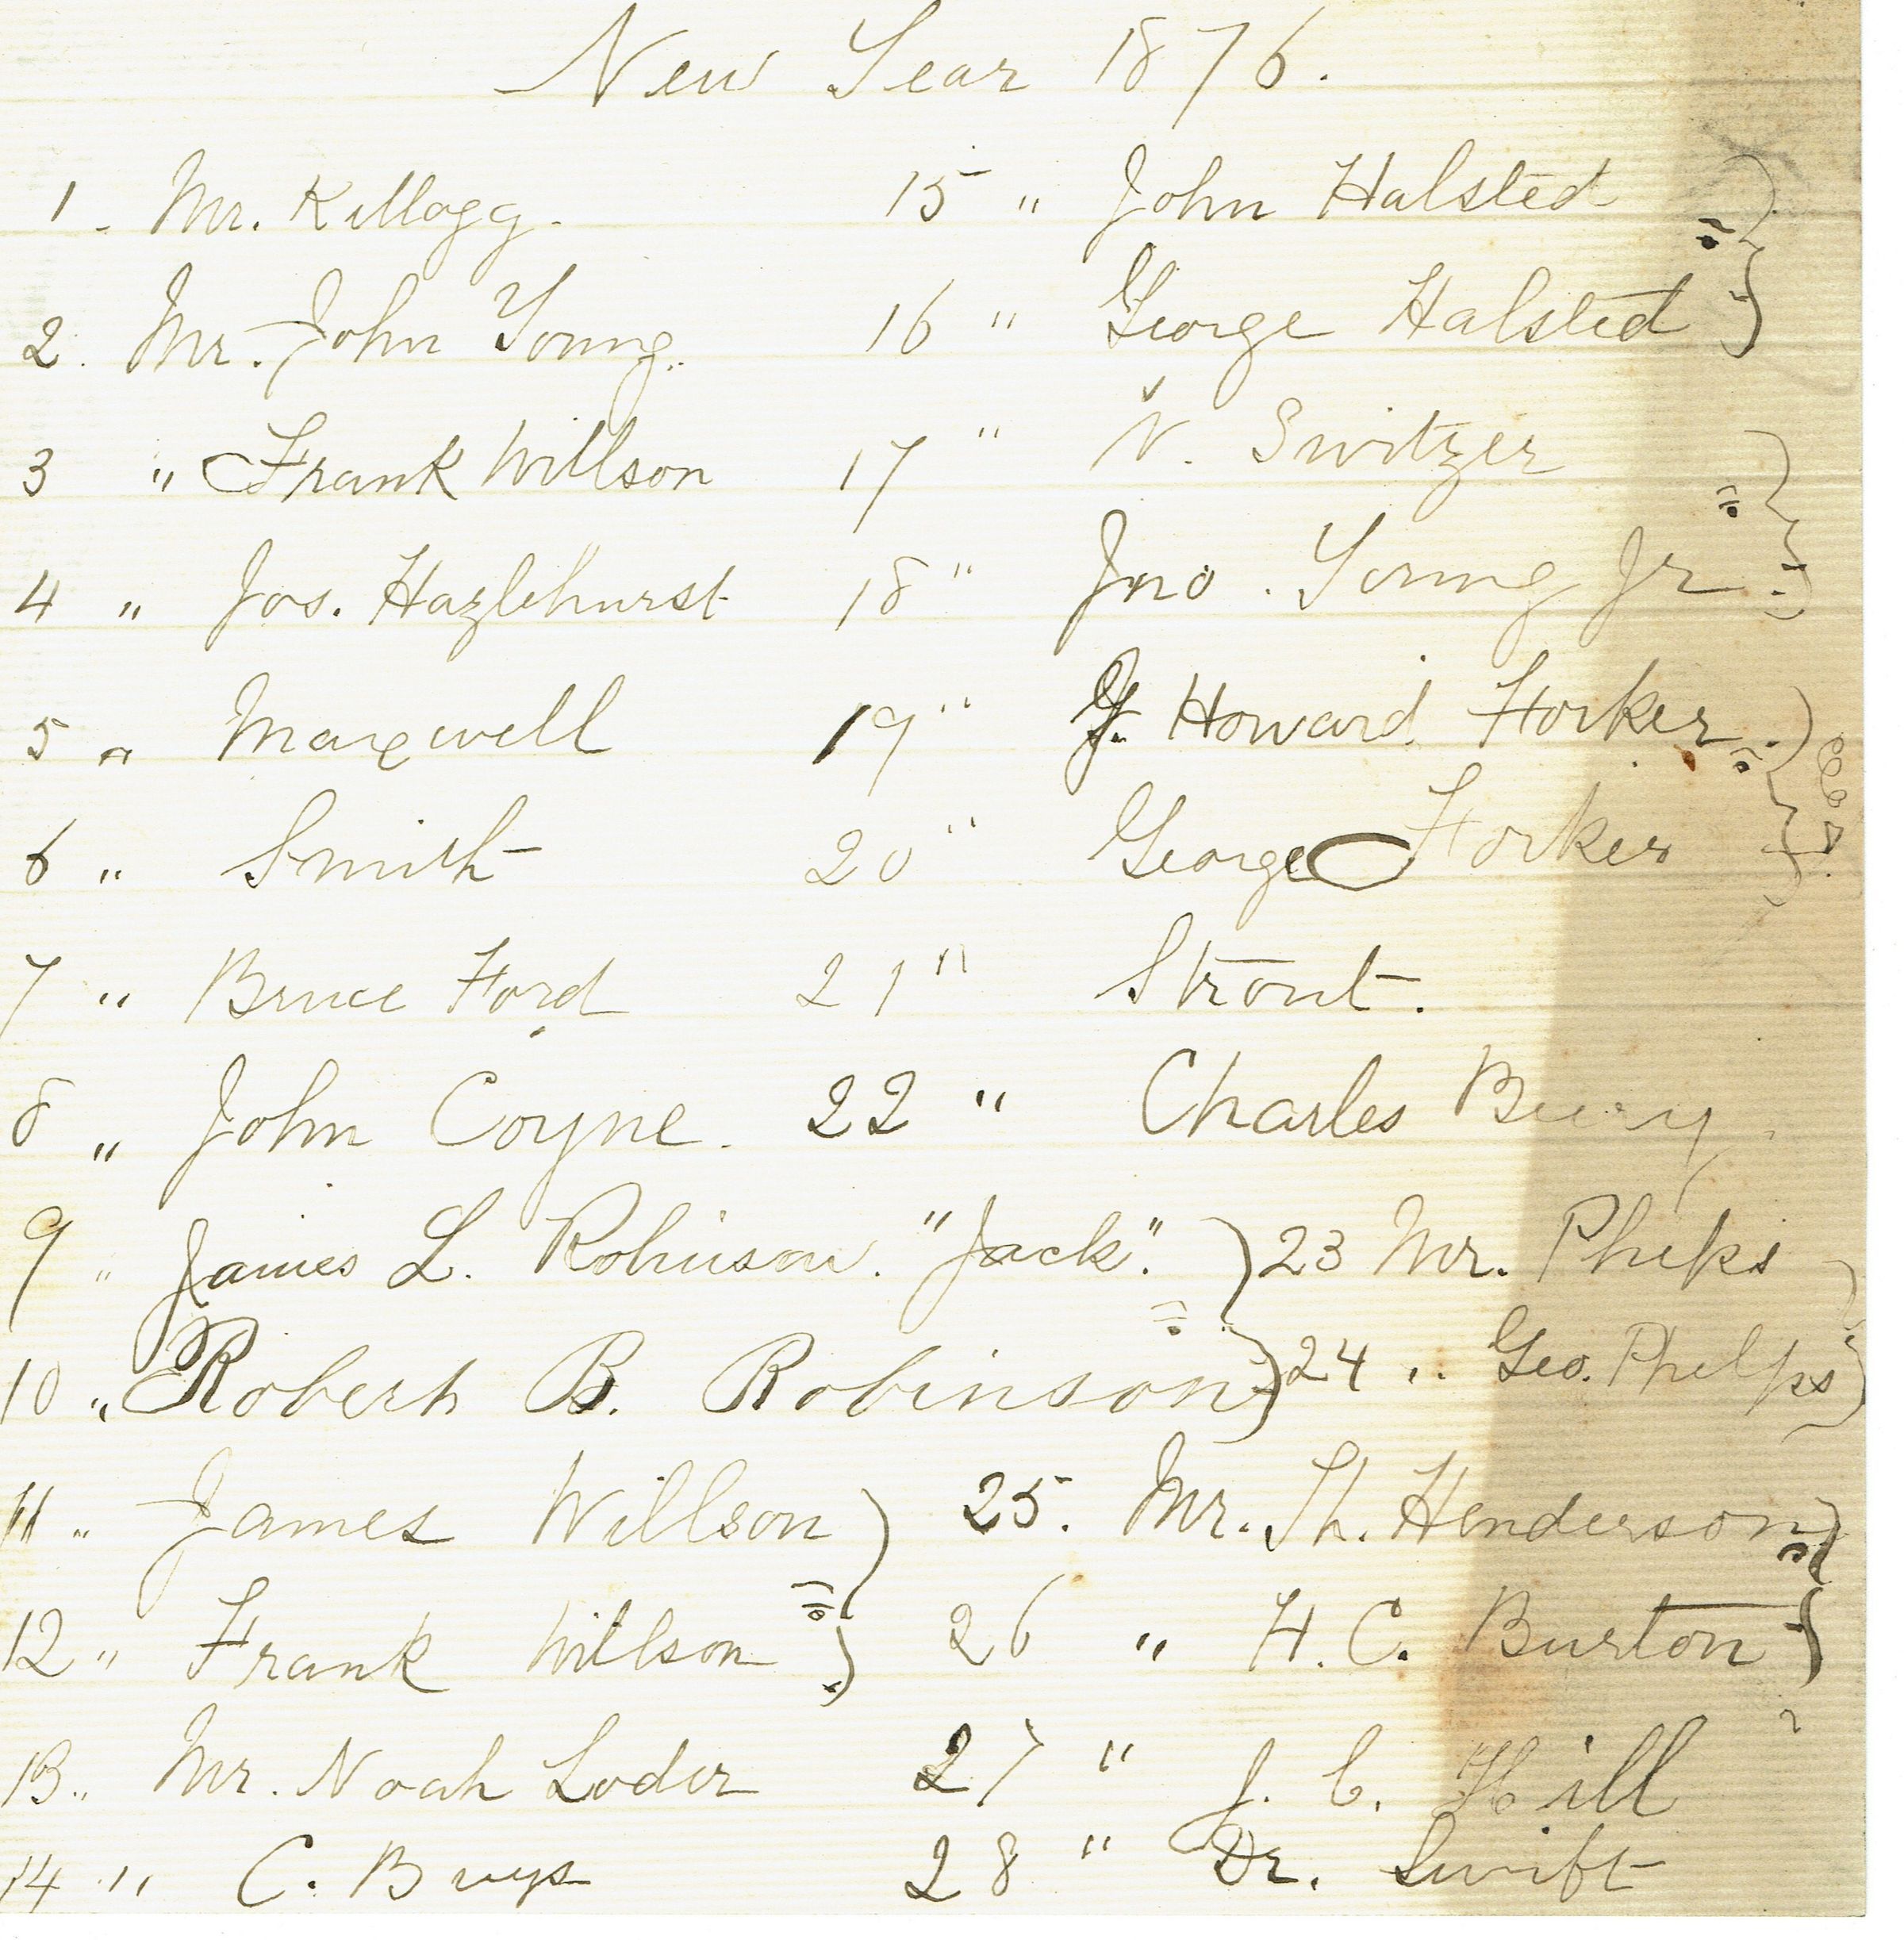 New Year 1876.
1. Mr. Kellogg.
2. Mr. John Young.
3 " Frank Willson
4 " Jos. Hazlehurst
5 " Maxwell
6 " Smith
7 " Bruce Ford
8 " John Coyne.
9 " James L. Robinson. "Jack".
10 " Robert B. Robinson
11 " James Willson
12 " Frank Willson
13.. Mr. Noah Loder
14 " C. Buys
15 " John Halsted
16 " George Halsted
17 " N. Switzer
18 " Jno. Young Jr
19 " Howard Horker.
20 " George Horker
21 " Strout.
22 " Charles
23 Mr. Phelps
24 " Geo. Phelps
25. Mr. Th. Henderson
26 " H. C. Burton
27 " J. C. Hill
28 " Dr. Swift